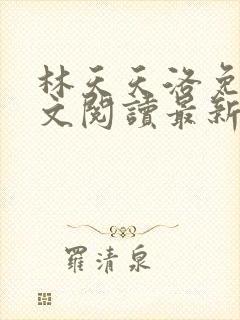 林天天洛免
文閱讀最新
羅清泉